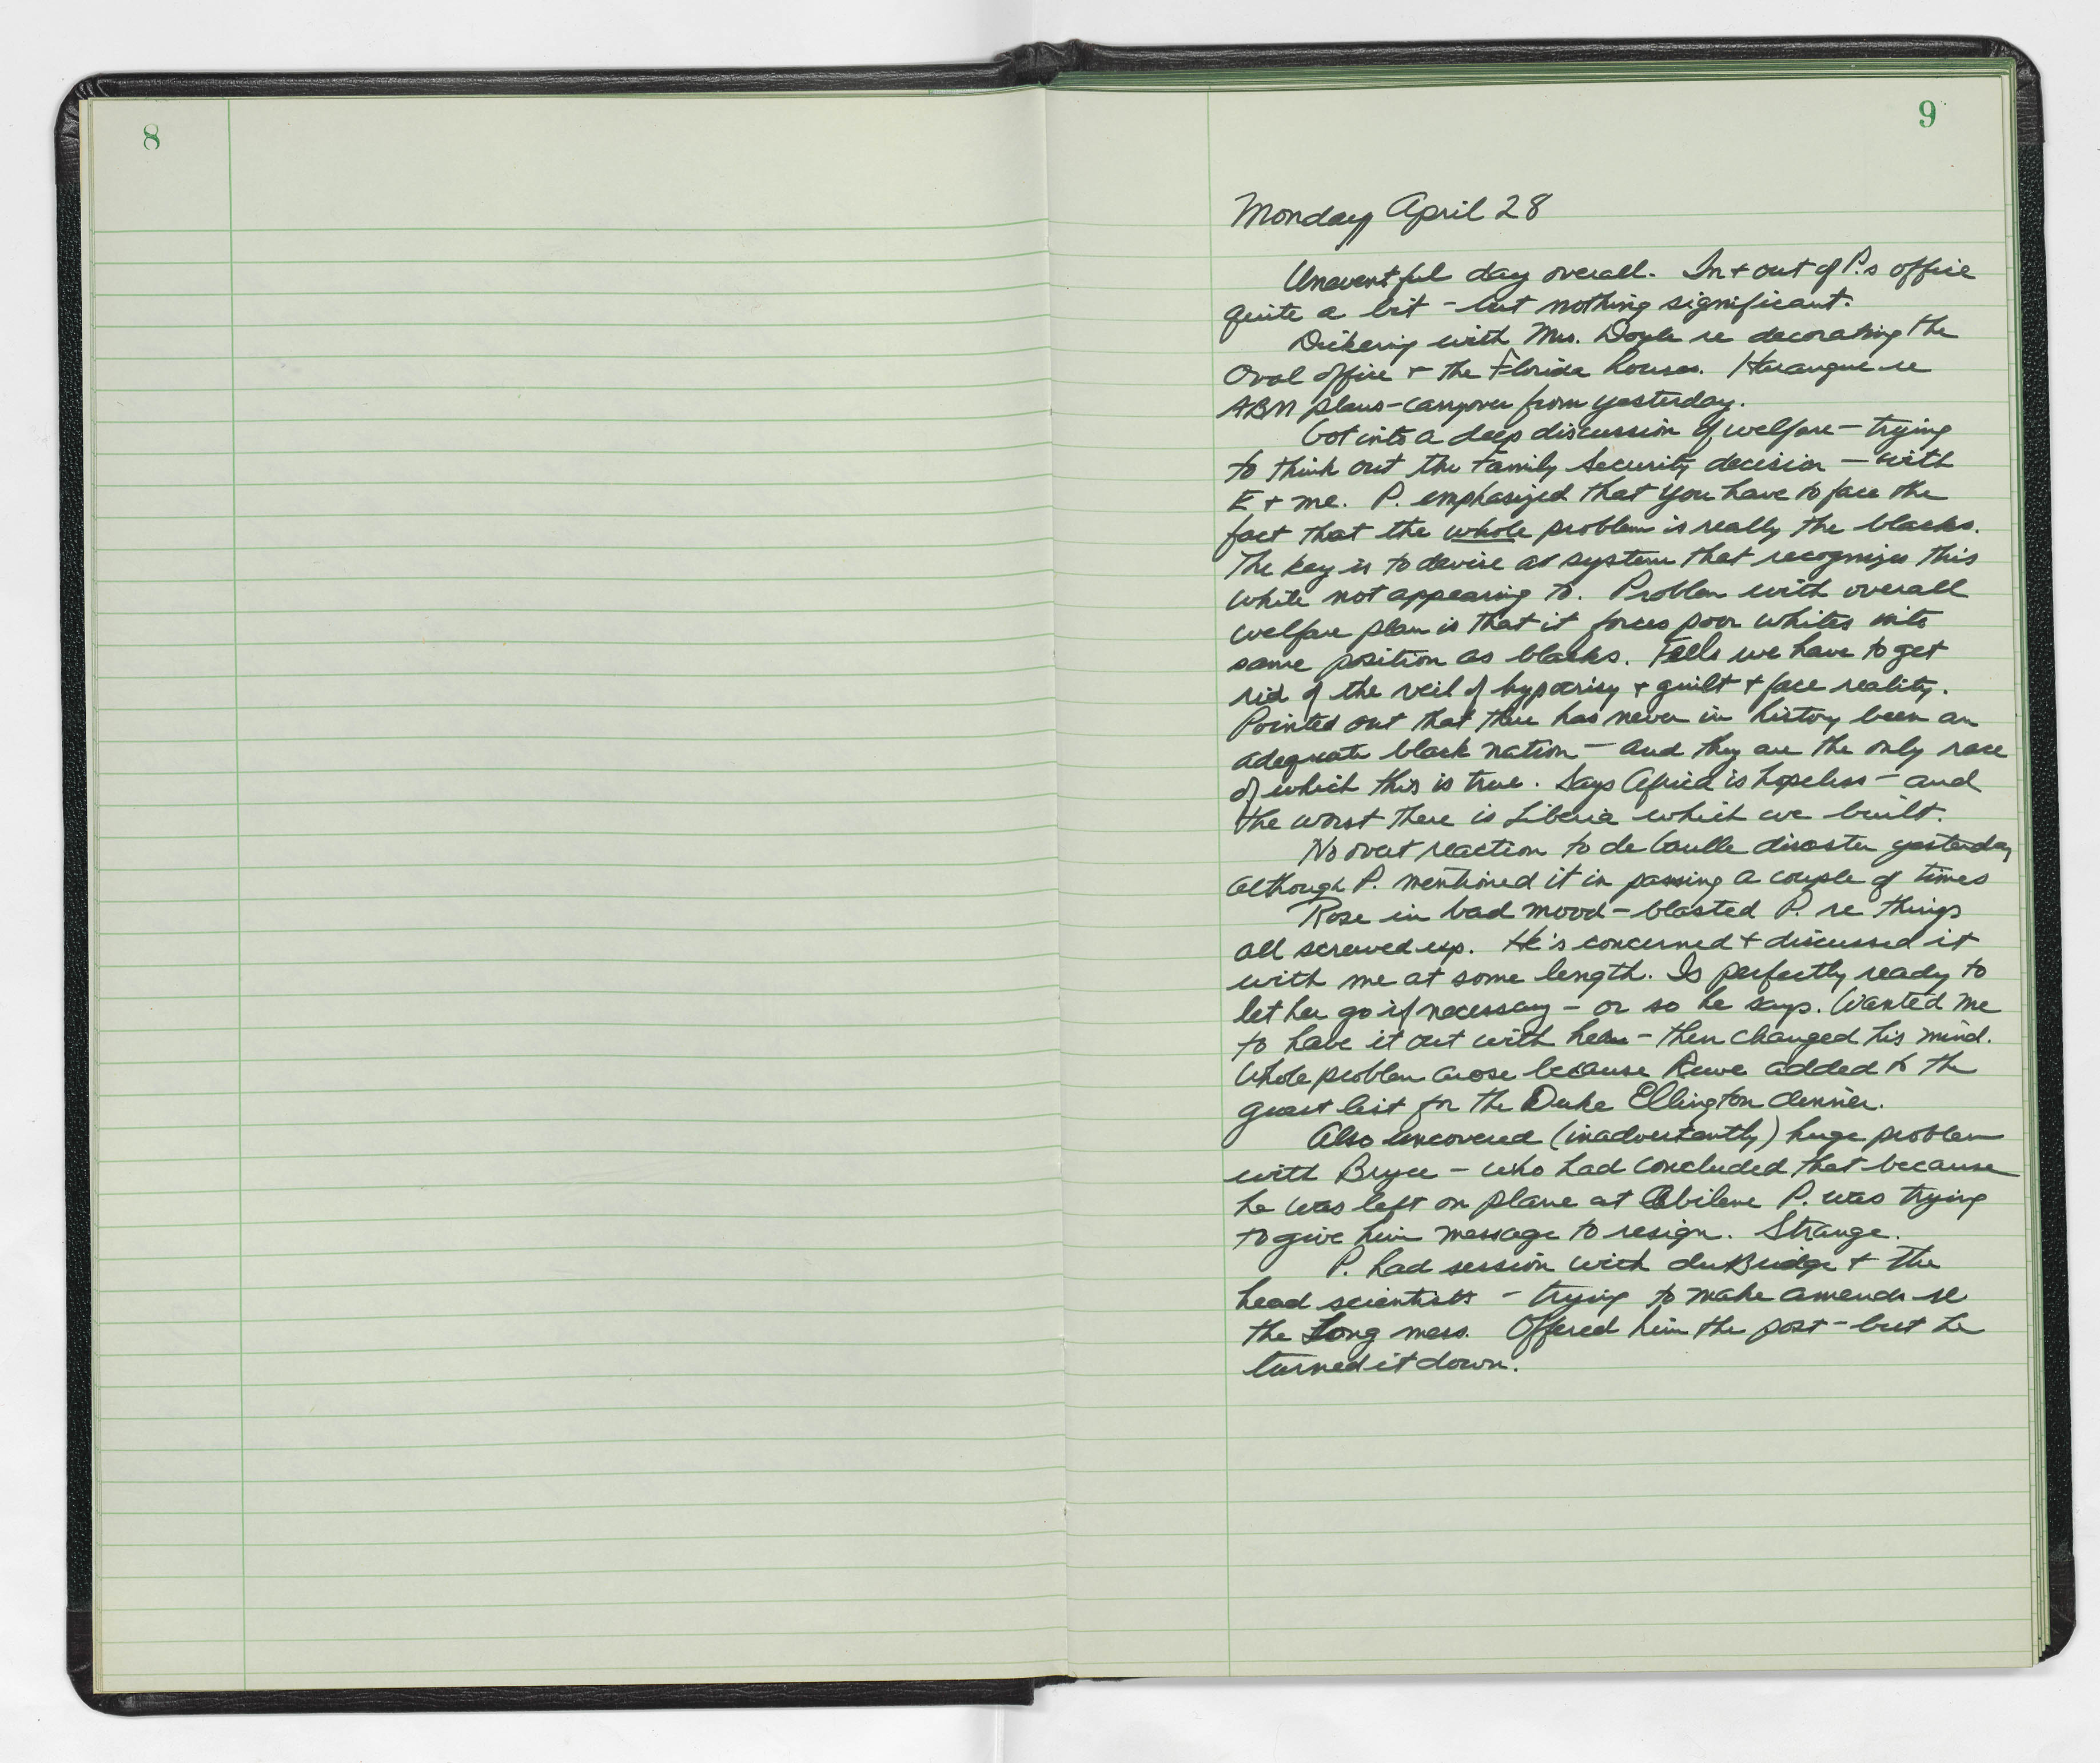 8
9
Monday April 28
Uneventful day overall. In + out of P.s office
quite a bit - but nothing significant.
Dickering with Mrs. Doyle re decorating the
Oval office + the Florida houses. Harangue re
ABM plans - carryover from yesterday.
Got into a deep discussion of welfare - trying
to think out the Family Security decision - with
E + me. P. emphasized that you have to face the
fact that the whole problem is really the blacks.
The key is to devise a system that recognizes this
while not appearing to. Problem with overall
welfare plan is that it forces poor whites into
same position as blacks. Feels we have to get
rid of the veil of hypocrisy + guilt + face reality.
Pointed out that there has never in history been an
adequate black nation - and they are the only race
of which this is true. Says Africa is hopeless - and
the worst there is Liberia which we built.
No overt reaction to de Gaulle disaster yesterday
although P. mentioned it in passing a couple of times
Rose in bad mood - blasted P. re things
all screwed up. He's concerned + discussed it
with me at some length. Is perfectly ready to
let her go if necessary - or so he says. Wanted me
to have it out with her - then changed his mind.
Whole problem arose because Ruwe added to the
guest list for the Duke Ellington dinner.
Also uncovered (inadvertently) huge problem
with Bryce - who had concluded that because
he was left on plane at Abilene P. was trying
to give him message to resign. Strange.
P. had session with duBridge + the
head scientists - trying to make amends re
the Long mess. Offered him the post - but he
turned it down.